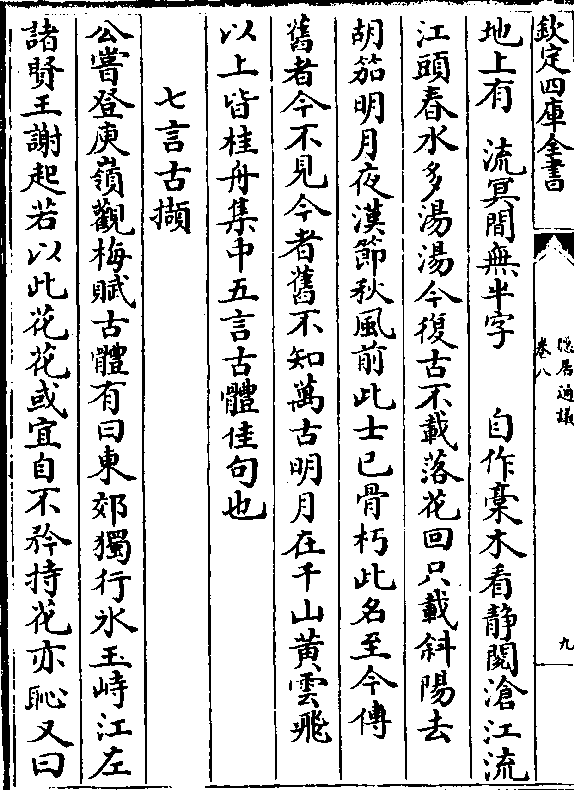 欽定四庫全書
隱居通議
卷八
九
地上有　流冥間無半字　自作槀木看靜閱滄江流
江頭春水多湯湯今復古不載落花回只載斜陽去
胡笳明月夜漢節秋風前此士已骨朽此名至今傳
舊者今不見今者舊不知萬古明月在千山黃雲飛
以上皆桂舟集中五言古體佳句也
七言古擷
公嘗登庾嶺觀梅賦古體有曰東郊獨行氷玉峙江左
諸賢王謝起若以此花花或宜自不矜持花亦恥又曰